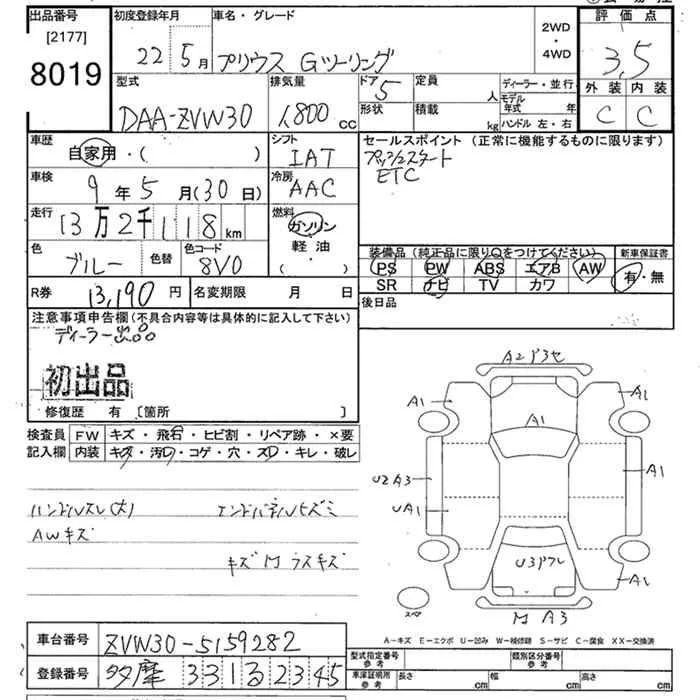 出品番号
[2177]
8019
初度登録年月
22 5月
車名・グレード
プリウス Gツーリング
2WD
・
4WD
評価点
3,5
外装 内装
C C
型式
DAA-ZVW30
排気量
1800 cc
ドア 5
形状
定員 人
積載 kg
ディーラー・並行
モデル年式 年
ハンドル 左・右
車歴
自家用・( )
シフト
IAT
セールスポイント (正常に機能するものに限ります)
プッシュスタート
ETC
車検
9年5月(30日)
冷房
AAC
走行
13万2千118km
燃料
ガソリン
軽油
・
( )
色
ブルー
色替
色コード
8V0
装備品 (純正品に限り○をつけてください)
PS PW ABS エアB AW
SR ナビ TV カワ
新車保証書
有・無
R券 13,190円
名変期限 月 日
後日品
注意事項申告欄(不具合内容等は具体的に記入して下さい)
ディーラー出品
初出品
修復歴 有 [箇所 ]
検査員記入欄
FW キズ・飛石・ヒビ割・リペア跡・×要
内装 キズ・汚レ・コゲ・穴・スレ・キレ・破レ
ハンドルスレ(大) エンドパネルヒズミ
AWキズ
キズ M ラスキズ
A1
A1
A1
A1
U2 A3
UA1
A1
A1
M A3
スペア
A-キズ E-エクボ U-凹み W-補修跡 S-サビ C-腐食 XX-交換済
車台番号 ZVW30-5159282
登録番号 多摩 331 る 2345
型式指定番号 参考
類別区分番号 参考
車庫証明用 参考
長さ cm
幅 cm
高さ cm